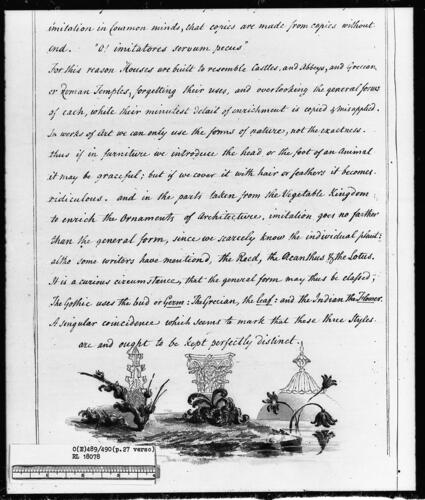 imitation in Common minds, that copies are made from copies without
end. "O! imitatores servum pecus"
For this reason Houses are built to resemble Castles, and Abbeys, and Grecian
or Roman Temples, forgetting their uses, and overlooking the general forms
of each, while their minutest detail of enrichment is copied & misapplied.
In works of Art we can only use the forms of nature, not the exactness.
thus if in furniture we introduce the head or the foot of an Animal
it may be graceful; but if we cover it with hair or feathers it becomes
ridiculous. and in the parts taken from the Vegetable Kingdom
to enrich the Ornaments of Architecture, imitation goes no farther
than the general form, since we scarcely know the individual plant:
altho some writers have mentiond, the Reed, the Acanthus & the Lotus.
It is a curious circumstance, that the general form may thus be classed;
The Gothic uses the bud or Germ: The Grecian, the Leaf: and the Indian the Flower.
A singular coincidence which seems to mark that these three Styles
are and ought to be kept perfectly distinct.
O(E)489/490(p.27 verso)
RL 18078